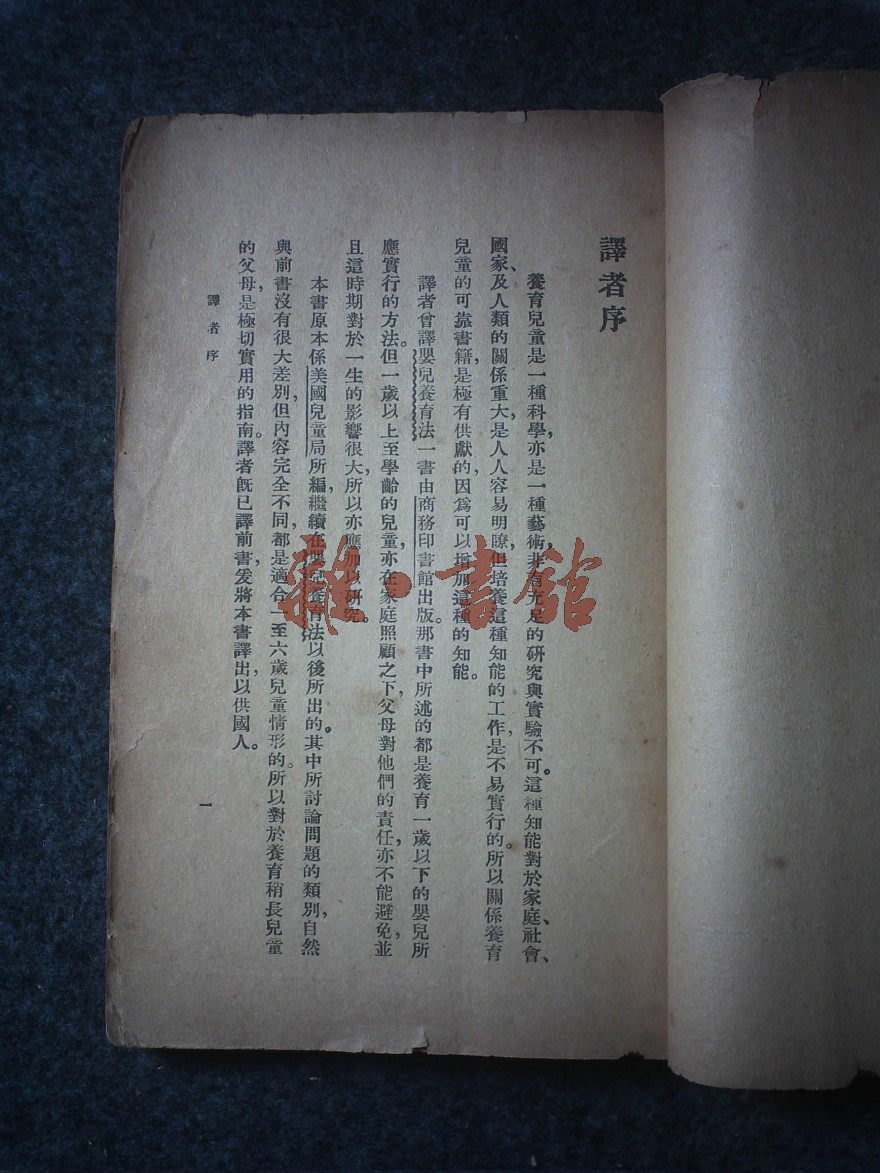 譯者序
養育兒童是一種科學,亦是一種藝術,非有充足的研究與實驗不可。這種知能對於家庭、社會、
國家、及人類的關係重大,是人人容易明瞭,但培養這種知能的工作,是不易實行的。所以關係養育
兒童的可靠書籍,是極有供獻的,因爲可以增加這種的知能。
譯者曾譯嬰兒養育法一書由商務印書館出版。那書中所述的都是養育一歲以下的嬰兒所
應實行的方法。但一歲以上至學齡的兒童,亦在家庭照顧之下,父母對他們的責任,亦不能避免,並
且這時期對於一生的影響很大,所以亦應加以研究。
本書原本係美國兒童局所編,繼續在嬰兒養育法以後所出的。其中所討論問題的類別,自然
與前書沒有很大差別,但內容完全不同,都是適合一至六歲兒童情形的。所以對於養育稍長兒童
的父母,是極切實用的指南。譯者既已譯前書,爰將本書譯出,以供國人。
譯者序
一
雜·書館